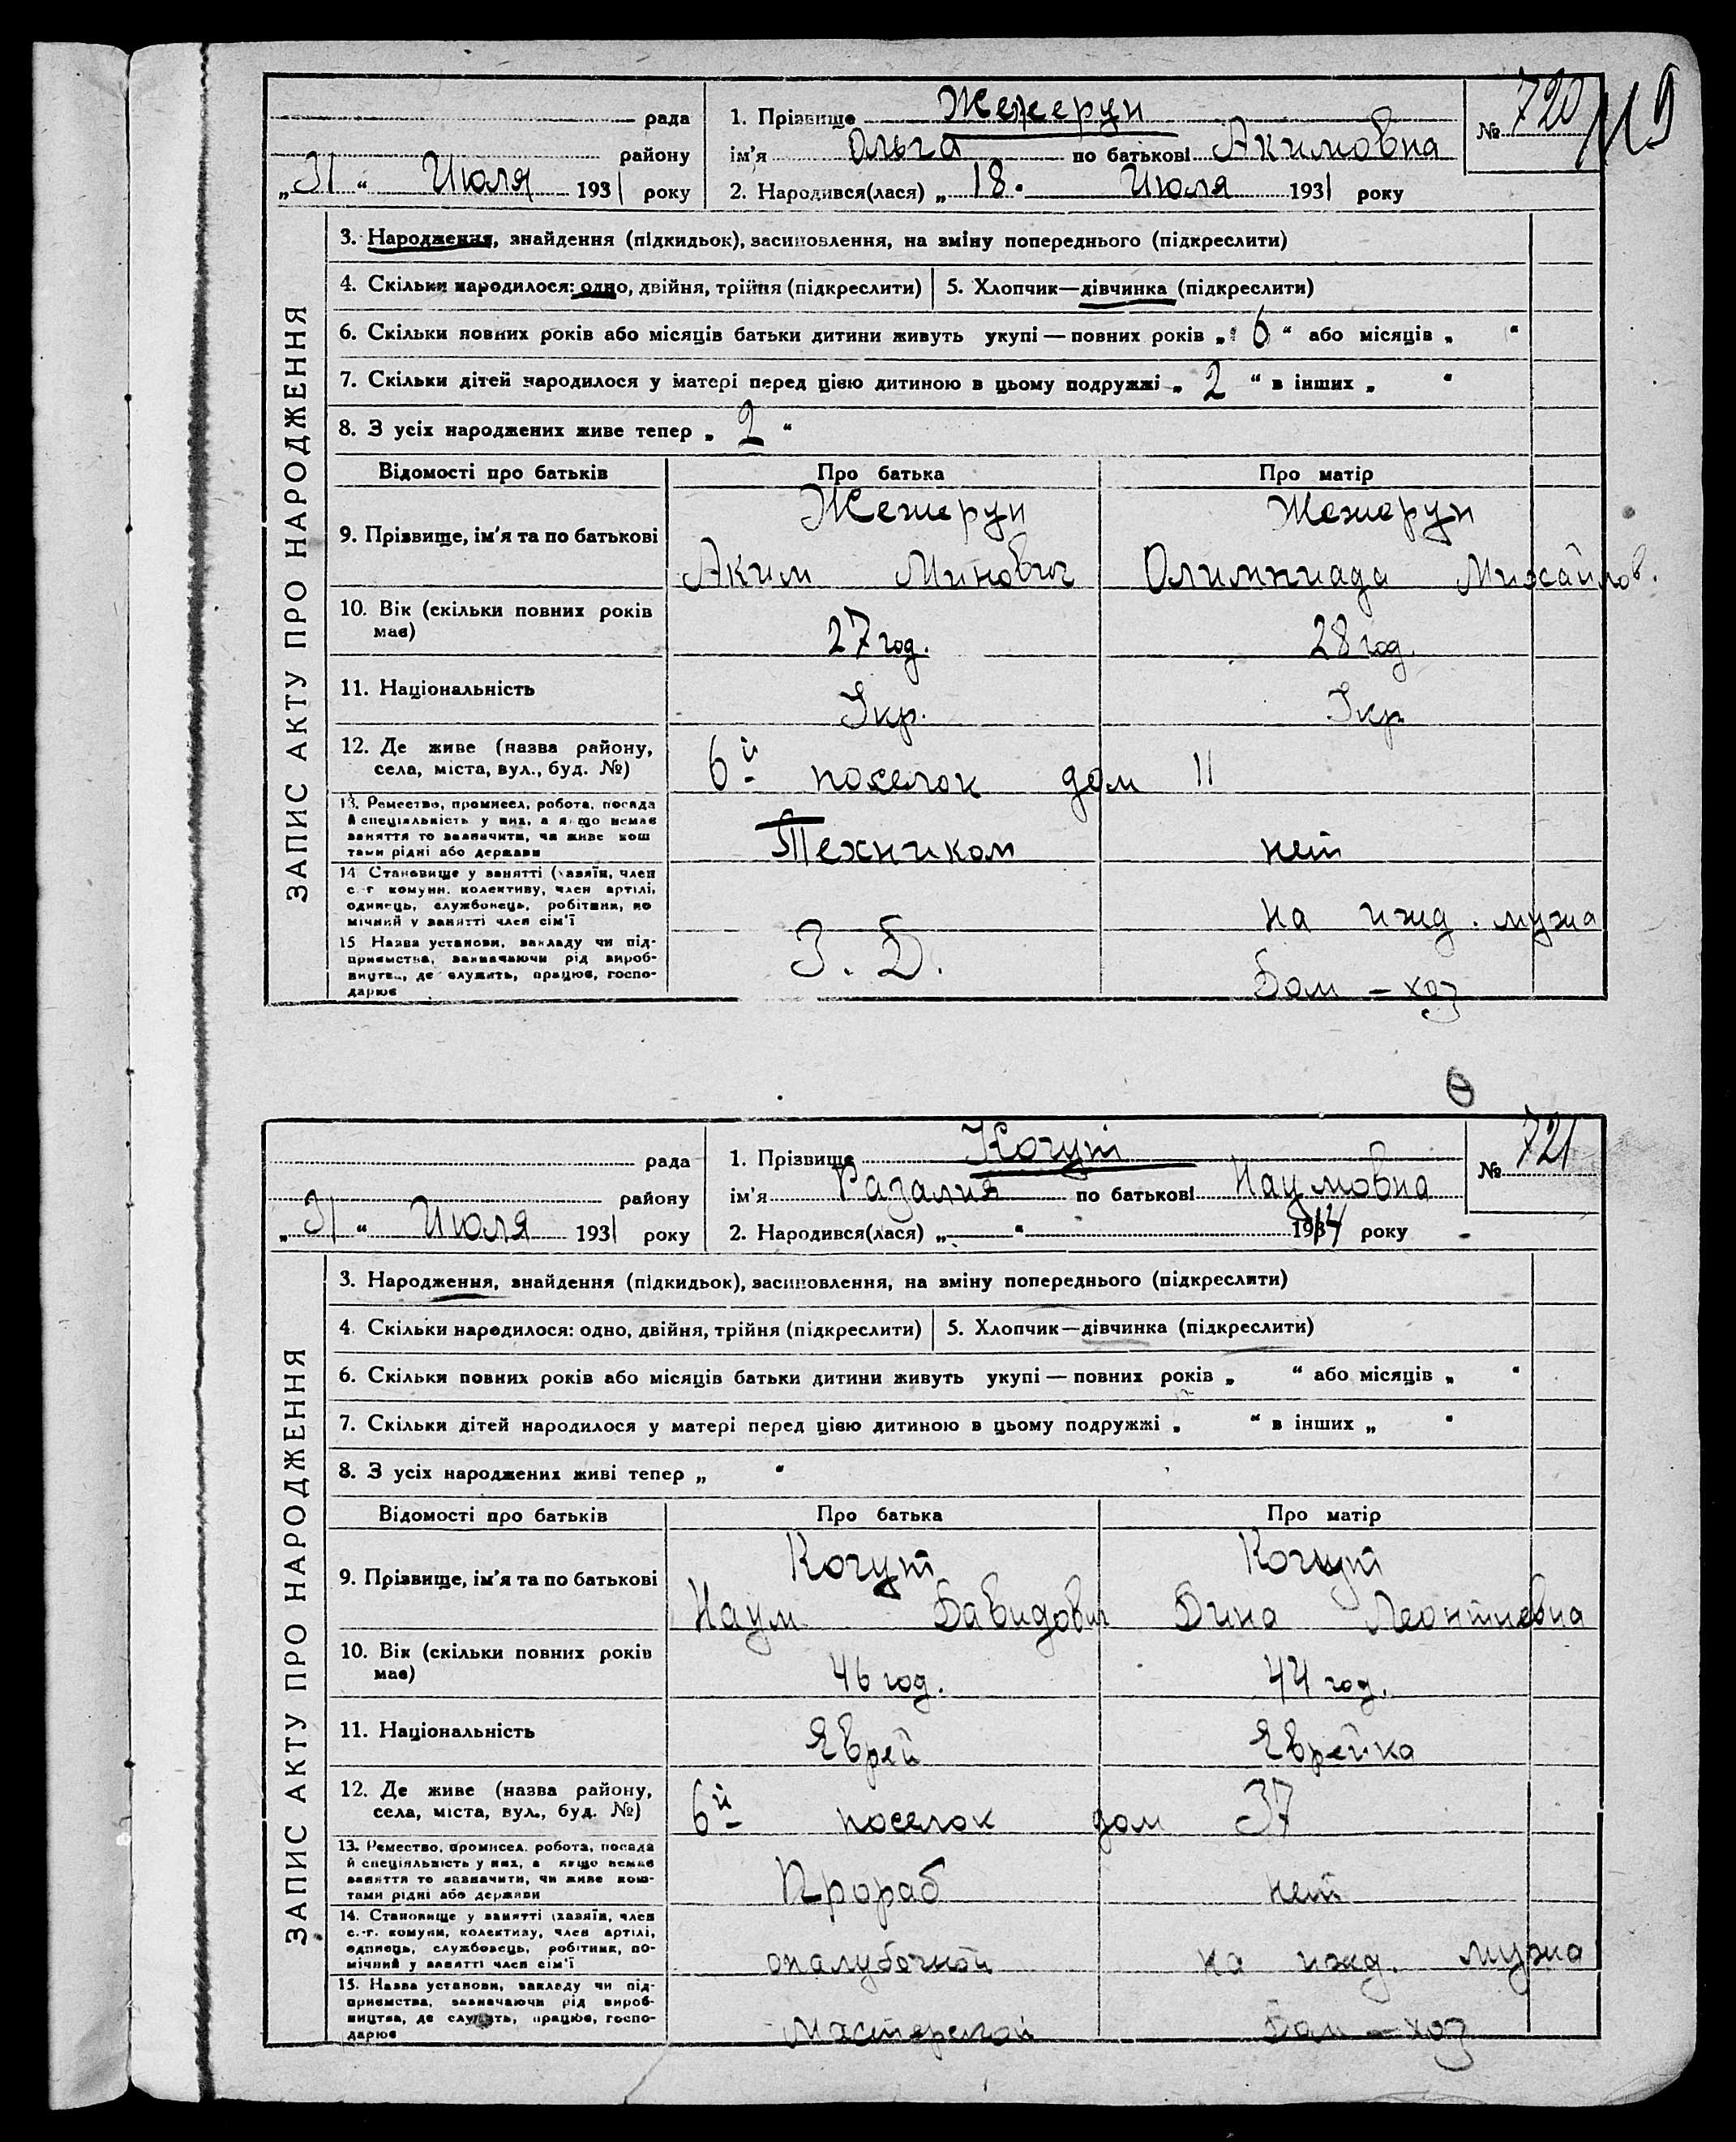 рада
району
„31“ Июля 1931 року
1. Прізвище Жежерун
ім'я Ольга по батькові Акимовна
2. Народився(лася) „18. Июля 1931 року
№ 720
119
ЗАПИС АКТУ ПРО НАРОДЖЕННЯ
3. Народження, знайдення (підкидьок), засиновлення, на зміну попереднього (підкреслити)
4. Скільки народилося: одно, двійня, трійня (підкреслити) 5. Хлопчик—дівчинка (підкреслити)
6. Скільки повних років або місяців батьки дитини живуть укупі — повних років „ 6 “ або місяців „ “
7. Скільки дітей народилося у матері перед цією дитиною в цьому подружжі „ 2 “ в інших „ “
8. З усіх народжених живе тепер „ 2 “
Відомості про батьків Про батька Про матір
9. Прізвище, ім'я та по батькові
Жежерун Жежерун
Аким Минович Олимпиада Михайлов.
10. Вік (скільки повних років
має)
27 год. 28 год.
11. Національність
Укр. Укр
12. Де живе (назва району,
села, міста, вул., буд. №)
6й поселок дом 11
13. Ремество, промисел, робота, посада
й спеціяльність у них, а якщо немає
заняття то зазначити, чи живе кош
тами рідні або держави
Техником нет
14 Становище у занятті (хазяїн, член
с.-г комуни. колективу, член артілі,
одинець, службовець, робітник, по
мічний у занятті член сім'ї
на ижд. мужа
15 Назва установи, закладу чи під-
приємства, зазначаючи рід вироб-
ництва, де служить, працює, госпо-
дарює
З. Д. Дом – хоз
рада
району
„31“ Июля 1931 року
1. Прізвище Когут
ім'я Разалия по батькові Наумовна
2. Народився(лася) „ “ 1914 року
№ 721
ЗАПИС АКТУ ПРО НАРОДЖЕННЯ
3. Народження, знайдення (підкидьок), засиновлення, на зміну попереднього (підкреслити)
4. Скільки народилося: одно, двійня, трійня (підкреслити) 5. Хлопчик—дівчинка (підкреслити)
6. Скільки повних років або місяців батьки дитини живуть укупі — повних років „ “ або місяців „ “
7. Скільки дітей народилося у матері перед цією дитиною в цьому подружжі „ “ в інших „ “
8. З усіх народжених живі тепер „ “
Відомості про батьків Про батька Про матір
9. Прізвище, ім'я та по батькові
Когут Когут
Наум Давидович Дина Леонтиевна
10. Вік (скільки повних років
має)
46 год. 44 год.
11. Національність
Еврей Еврейка
12. Де живе (назва району,
села, міста, вул., буд. №)
6й поселок дом 37
13. Ремество, промисел. робота, посада
й спеціяльність у них, а якщо немає
заняття то зазначити, чи живе кош-
тами рідні або держави
Прораб нет
14. Становище у занятті (хазяїн, член
с.-г. комуни, колективу, член артілі,
одинець, службовець, робітник, по-
мічний у занятті член сім'ї
опалубочной на ижд. мужа
15. Назва установи, закладу чи під-
приємства, зазначаючи рід вироб-
ництва, де служить, працює, госпо-
дарює
Мастерской Дом – хоз